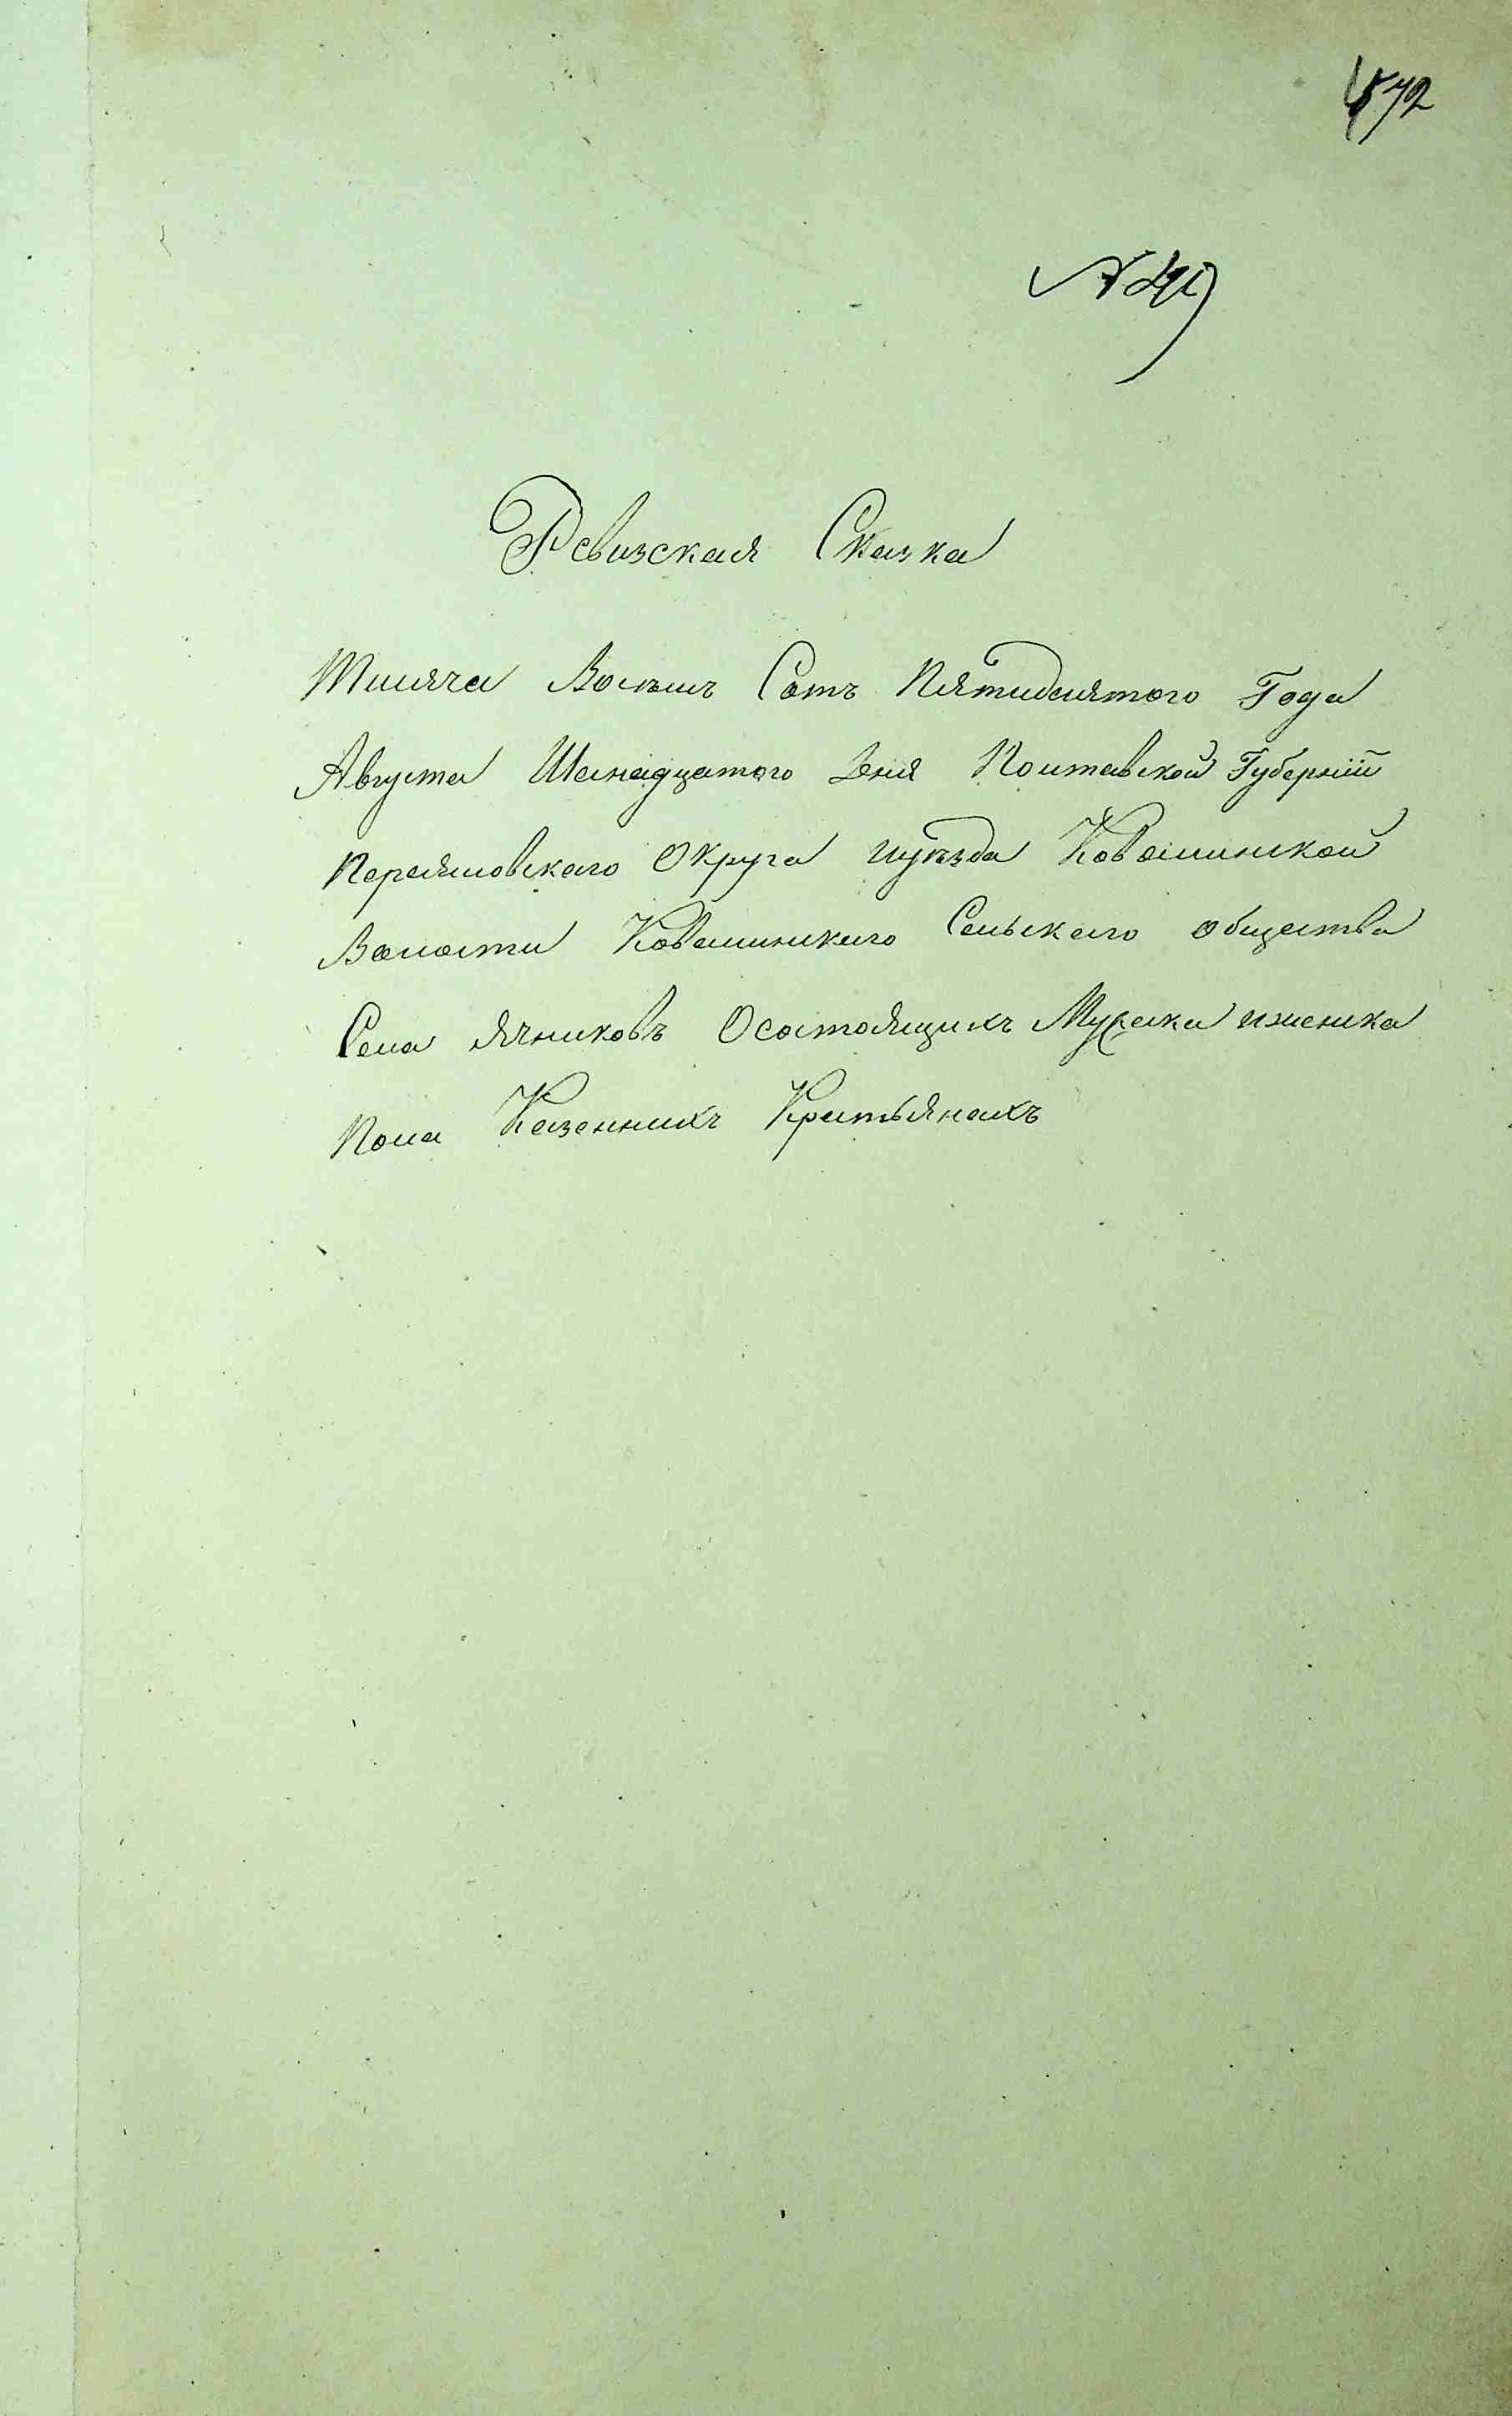 572
№ 49
Ревизская Сказка
Тисяча Восемъ Сотъ Пятидесятого Года
Августа Шеснадцатого Дня Полтавской Губерніи
Переясловского Округа иуезда Ковалинской
Волости Ковалинского Сельского общества
Села Ячниковъ Осостоящихъ Мужеска иженска
Пола Казеннихъ Крестьянахъ